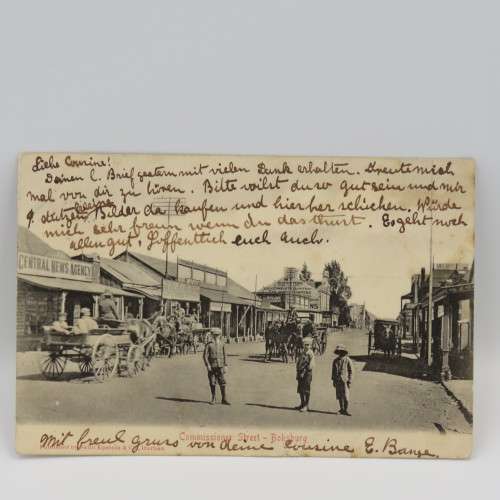 Liebe Cousine!
Deinen l. Brief gestern mit vielen Dank erhalten. Freute mich
mal von dir zu hören. Bitte willst du so gut sein und mir
9 dutzend kleine Bilder da kaufen und hierher schicken. Würde
mich sehr freun wenn du das thust. Es geht noch
allen gut, Hoffentlich euch auch.
CENTRAL NEWS AGENCY
Commissioner Street - Boksburg
Mit freul gruss von deine cousine E. Banze.